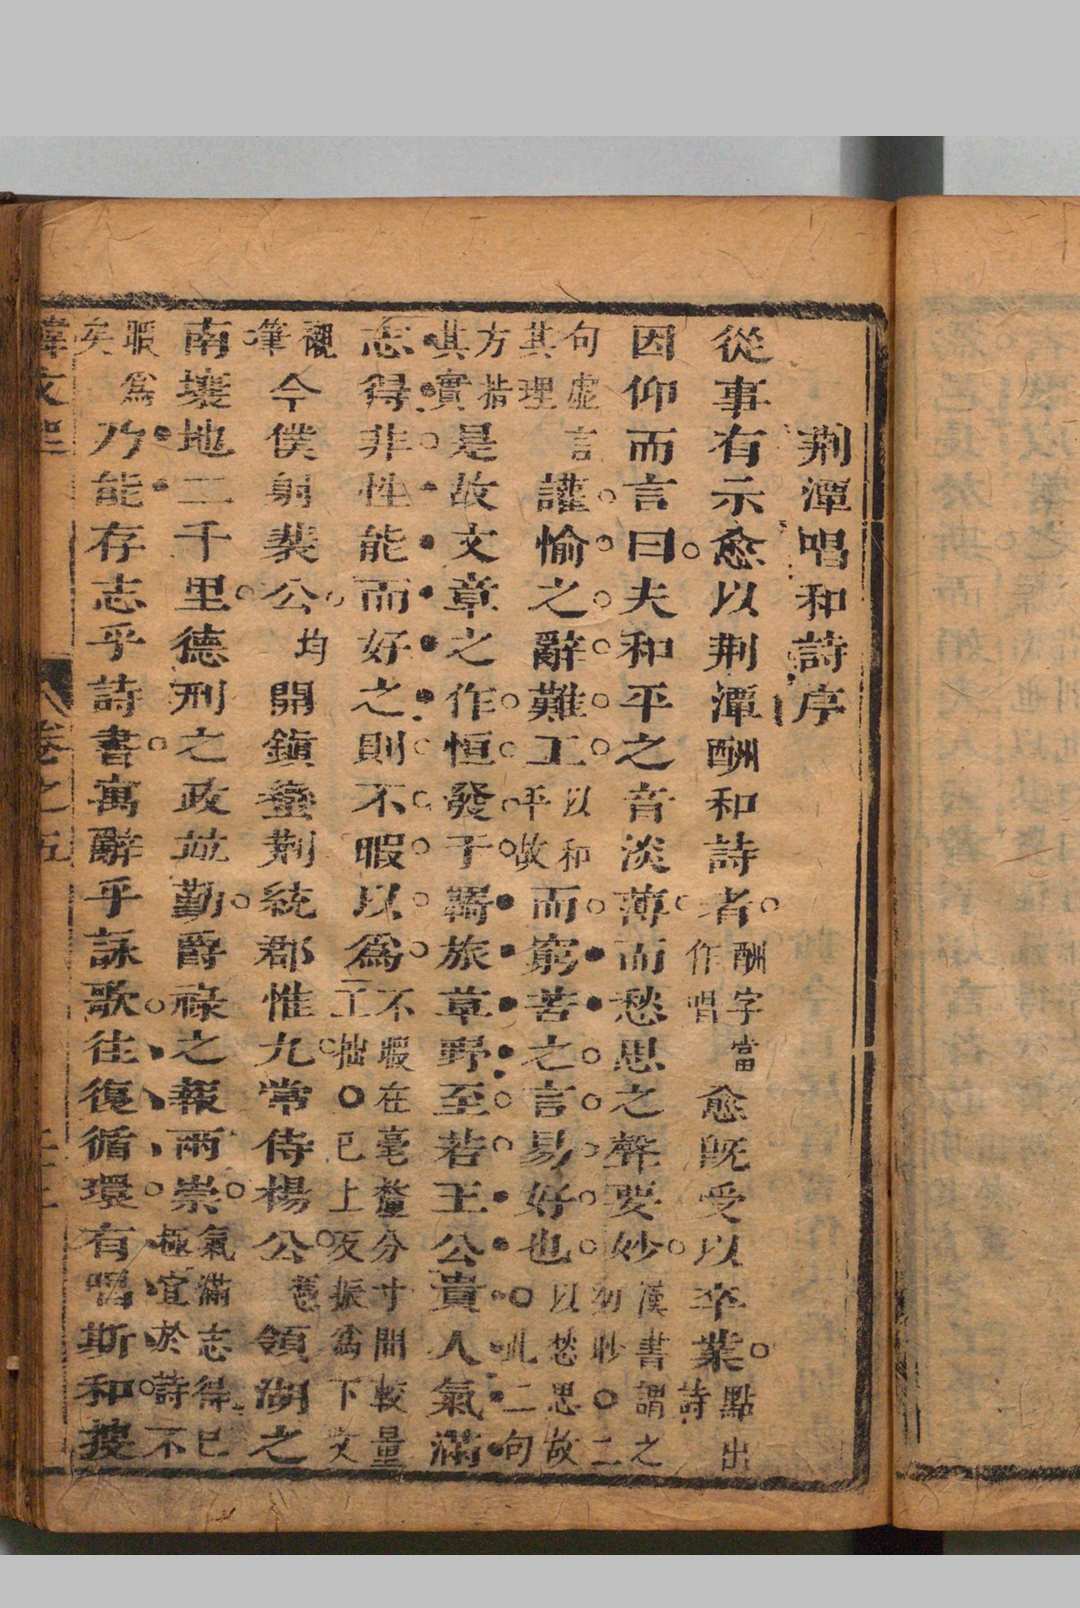 荆潭唱和詩序
從事有示愈以荆潭酬和詩者酬字當作唱愈既受以卒業點出詩
因仰而言曰夫和平之音淡薄而愁思之聲要妙漢書謂之幼眇○二
句虛言其理讙愉之辭難工以和平故而窮苦之言易好也以愁思故○此二句
方指其實是故文章之作恒發于羇旅草野至若王公貴人氣滿
志得非性能而好之則不暇以為不暇在毫釐分寸間較量工拙○已上反振為下文
襯筆今僕射裴公均開鎮蠻荆統郡惟九常侍楊公憑領湖之
南壤地二千里德刑之政竝勤爵祿之報兩崇氣滿志得已極宜於詩不
暇為矣乃能存志乎詩書寓辭乎詠歌往復循環有唱斯和搜
韓文
卷之五